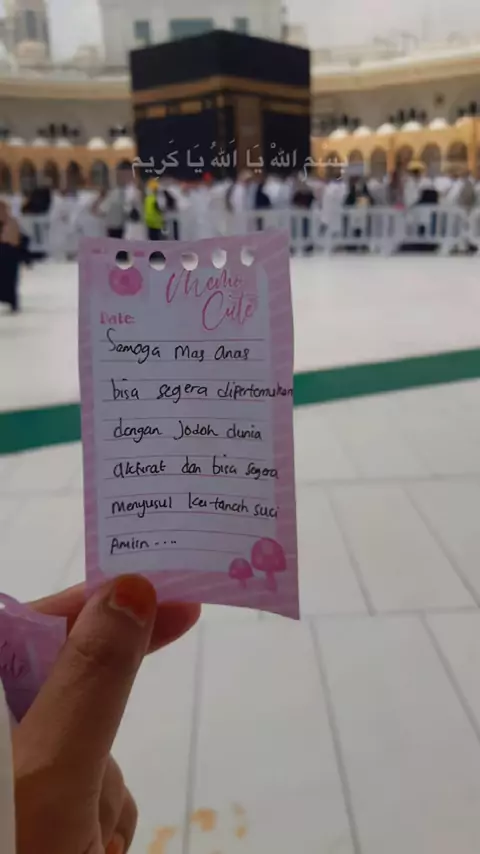 بِسْمِ اللهْ يَا اَللهُ يَا كَرِيم
Memo
Cute
Date:
Semoga Mas Anas
bisa segera dipertemukan
dengan Jodoh dunia
akhirat dan bisa segera
menyusul ke-tanah suci
Amiin....